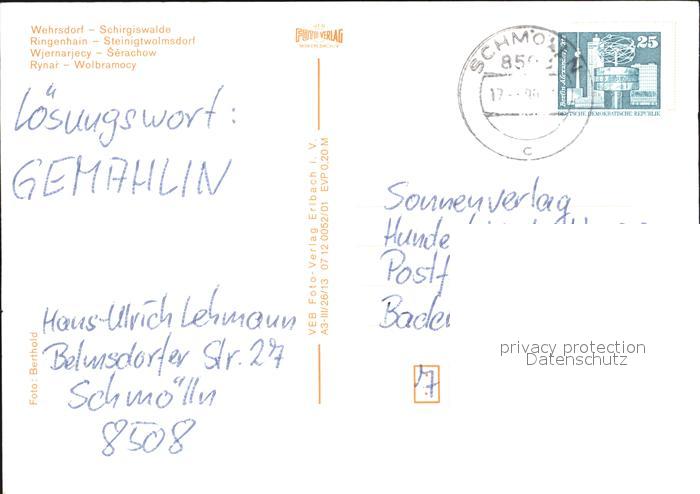 Wehrsdorf – Schirgiswalde
Ringenhain – Steinigtwolmsdorf
Wjernarjecy – Šěrachow
Rynar – Wolbramocy
FOTO VERLAG
Lösungswort:
GEMAHLIN
Hans-Ulrich Lehmann
Belmsdorfer Str. 27
Schmölln
8508
Foto: Berthold
VEB Foto-Verlag Erlbach i. V.
A3-III/26/13 07 12 0052/01 EVP 0,20 M
SCHMÖLLN
17
c
25
Berlin, Alexanderplatz
DEUTSCHE DEMOKRATISCHE REPUBLIK
Sonnenverlag
Hunde
Postf
Bade
privacy protection
Datenschutz